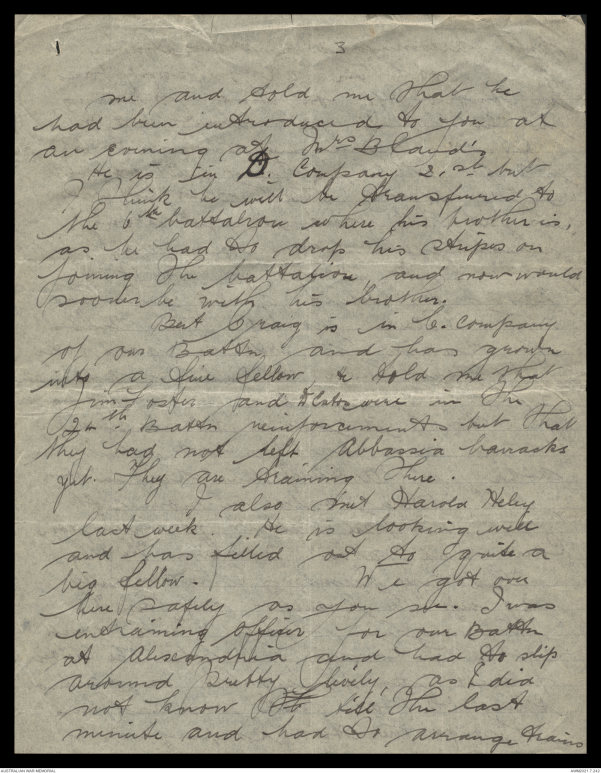 3
me and told me that he
had been introduced to you at
an evening at Mrs Bland's
He is in D. Company 21st but
I think he will be transferred to
the 6th battalion where his brother is,
as he had to drop his stripes on
joining the battalion, and now would
sooner be with his brother.
Bert Craig is in C. Company
of our Battn, and has grown
into a fine fellow, he told me that
Jim Foster and were in the
24th Battn reinforcements but that
they had not left Abbassia barracks
yet. They are training there.
I also met Harold Heley
last week. He is looking well
and has filled out to quite a
big fellow. We got over
here safely as you see. I was
entraining officer for our Battn
at Alexandria and had to slip
around pretty lively, as I did
not know till the last
minute and had to arrange trains
AUSTRALIAN WAR MEMORIAL